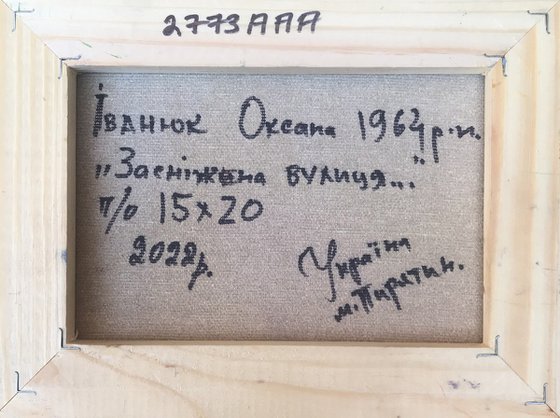 2773AAA
Іванюк Оксана 1964 р.н.
„Засніжена вулиця..."
п/о 15х20
2022р.
Україна
м. Пирятин.